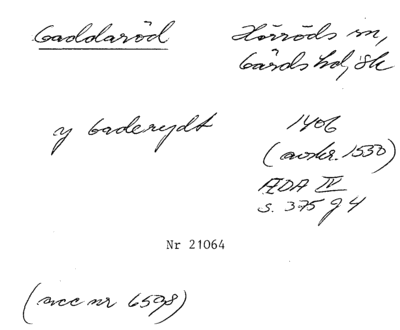 Gaddaröd
Hörröds sn,
Gärds hd, Sk
y Gaderydt
1406
(avskr. 1550)
ÆDA IV
s. 375 g 4
Nr 21064
(acc nr 6598)